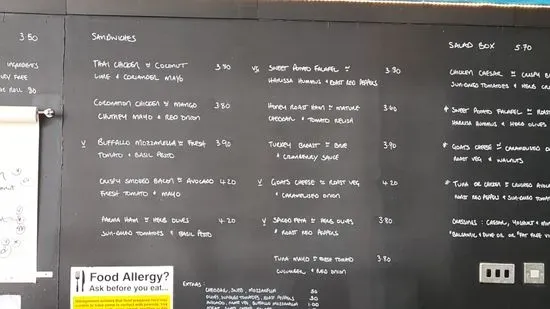 3.50
INGREDIENTS
FREE
ROLL 30
SANDWICHES
THAI CHICKEN & COCONUT 3.80
LIME & CORIANDER MAYO
CORONATION CHICKEN & MANGO 3.80
CHUTNEY MAYO & RED ONION
V BUFFALO MOZZARELLA & FRESH 3.90
TOMATO & BASIL PESTO
CRISPY SMOKED BACON & AVOCADO 4.20
FRESH TOMATO & MAYO
PARMA HAM & HERB OLIVES 4.20
SUN-DRIED TOMATOES & BASIL PESTO
SWEET POTATO FALAFEL & 3.80
HARISSA HUMMUS & ROAST RED PEPPERS
HONEY ROAST HAM & MATURE
CHEDDAR & TOMATO RELISH
TURKEY BREAST & BRIE 3.90
& CRANBERRY SAUCE
V GOATS CHEESE & ROAST VEG 4.20
& CARAMELISED ONION
V & HERB OLIVES 3.80
& ROAST RED PEPPERS
TUNA MAYO & FRESH TOMATO 3.80
CUCUMBER & RED ONION
SALAD BOX 5.70
CHICKEN CAESAR & CRISPY
SUN-DRIED TOMATOES & HERB
* SWEET POTATO FALAFEL &
HARISSA HUMMUS & HERB OLIVES
* GOATS CHEESE & CARAMELISED
ROAST VEG & WALNUTS
* TUNA OR CHICKEN &
& SUN-DRIED
DRESSINGS: CAESAR, YOGHURT &
BALSAMIC & OR FAT FREE
Food Allergy?
Ask before you eat...
EXTRAS:
CHEDDAR, MOZZARELLA
OLIVES, ROAST PEPPERS
AVOCADO, ROAST VEG, BUFFALO MOZZARELLA 1.00